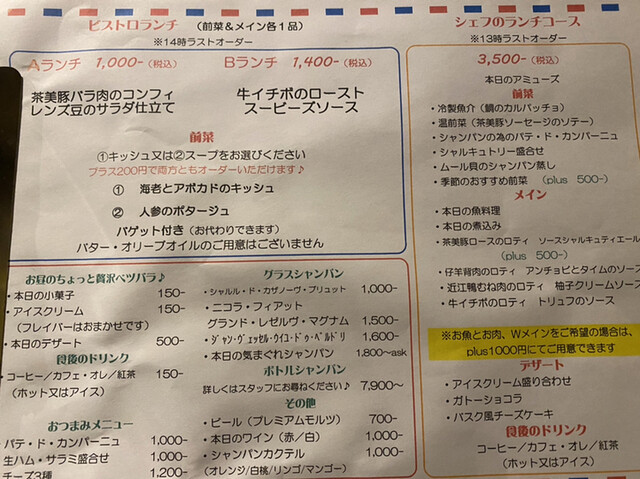 ビストロランチ （前菜＆メイン各1品）
※14時ラストオーダー
Aランチ 1,000-(税込)
茶美豚バラ肉のコンフィ
レンズ豆のサラダ仕立て
Bランチ 1,400-(税込)
牛イチボのロースト
スービーズソース
前菜
①キッシュ又は②スープをお選びください
プラス200円で両方ともオーダーいただけます♪
① 海老とアボカドのキッシュ
② 人参のポタージュ
バゲット付き（お代わりできます）
バター・オリーブオイルのご用意はございません
お昼のちょっと贅沢ベツバラ♪
・本日の小菓子 150-
・アイスクリーム 150-
（フレイバーはおまかせです）
・本日のデザート 500-
食後のドリンク
・コーヒー／カフェ・オレ／紅茶 150-
（ホット又はアイス）
おつまみメニュー
・パテ・ド・カンパーニュ 1,000-
・生ハム・サラミ盛合せ 1,000-
チーズ3種 1,200-
グラスシャンパン
・シャルル・ド・カザノーヴ・ブリュット 1,000-
・ニコラ・フィアット
グランド・レゼルヴ・マグナム 1,500-
・ジャン・ヴェッセル・ウイユ・ドゥ・ペルドリ 1,600-
・本日の気まぐれシャンパン 1,800～ask
ボトルシャンパン
詳しくはスタッフにお尋ねください♪ 7,900～
その他
・ビール（プレミアムモルツ） 700-
・本日のワイン（赤／白） 1,000-
・シャンパンカクテル 1,000-
（オレンジ/白桃/リンゴ/マンゴー）
シェフのランチコース
※13時ラストオーダー
3,500-(税込)
本日のアミューズ
前菜
・冷製魚介（鯛のカルパッチョ）
・温前菜（茶美豚ソーセージのソテー）
・シャンパンの為のパテ・ド・カンパーニュ
・シャルキュトリー盛合せ
・ムール貝のシャンパン蒸し
・季節のおすすめ前菜 (plus 500-)
メイン
・本日の魚料理
・本日の煮込み
・茶美豚ロースのロティ ソースシャルキュティエール
(plus 500-)
・仔羊背肉のロティ アンチョビとタイムのソース
・近江鴨むね肉のロティ 柚子クリームソース
・牛イチボのロティ トリュフのソース
※お魚とお肉、Wメインをご希望の場合は、
plus1000円にてご用意できます
デザート
・アイスクリーム盛り合わせ
・ガトーショコラ
・バスク風チーズケーキ
食後のドリンク
コーヒー／カフェ・オレ／紅茶
（ホット又はアイス）